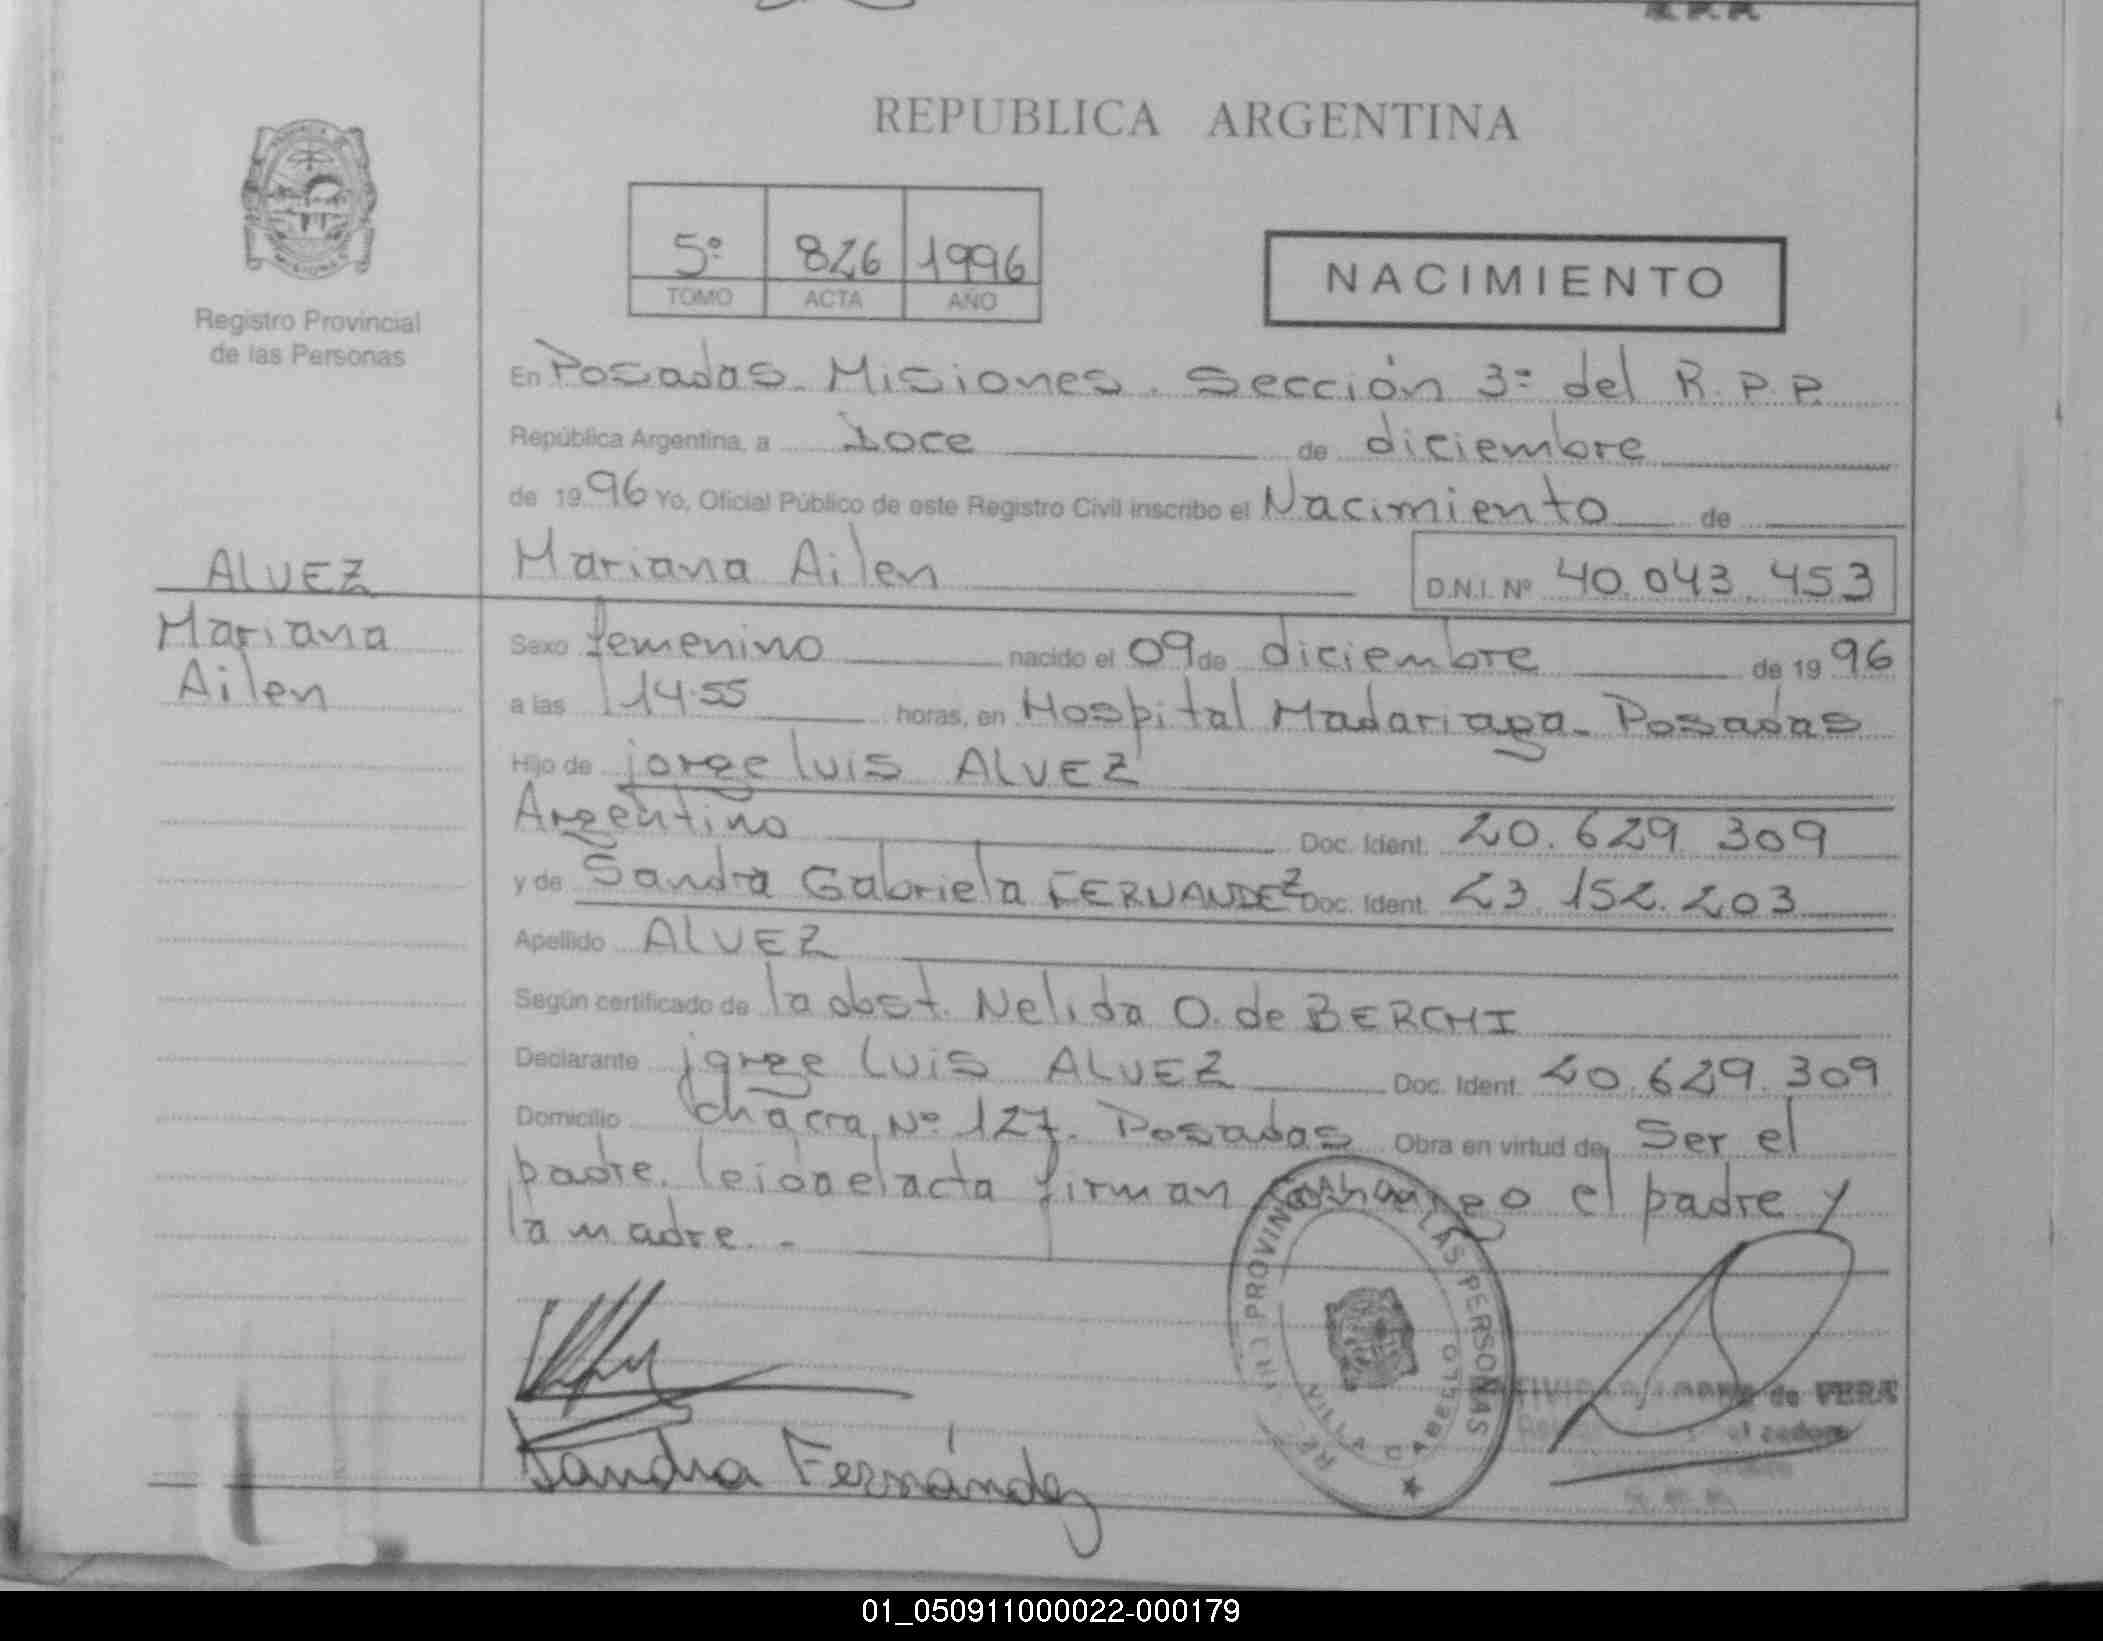 R.P.P.
REPUBLICA ARGENTINA
5º 826 1996
TOMO ACTA AÑO
NACIMIENTO
Registro Provincial
de las Personas
En Posadas. Misiones. Sección 3ª del R.P.P.
República Argentina, a Doce de diciembre
de 1996 Yo, Oficial Público de este Registro Civil inscribo el Nacimiento de
Mariana Ailen D.N.I. Nº 40.043.453
ALVEZ
Mariana
Ailen
Sexo femenino nacido el 09 de diciembre de 1996
a las 14.55 horas, en Hospital Madariaga - Posadas
Hijo de jorge luis ALVEZ
Argentino Doc. Ident. 20.629.309
y de Sandra Gabriela FERNANDEZ Doc. Ident. 23.152.203
Apellido ALVEZ
Según certificado de la obst. Nelida O. de BERCHI
Declarante jorge Luis ALVEZ Doc. Ident. 20.629.309
Domicilio chacra Nº 127. Posadas Obra en virtud de Ser el
padre. leida el acta firman conmigo el padre y
la madre. -
PROVINCIAL LAS PERSONAS
VILLA CABELLO
de VERA
Sandra Fernández
01_050911000022-000179